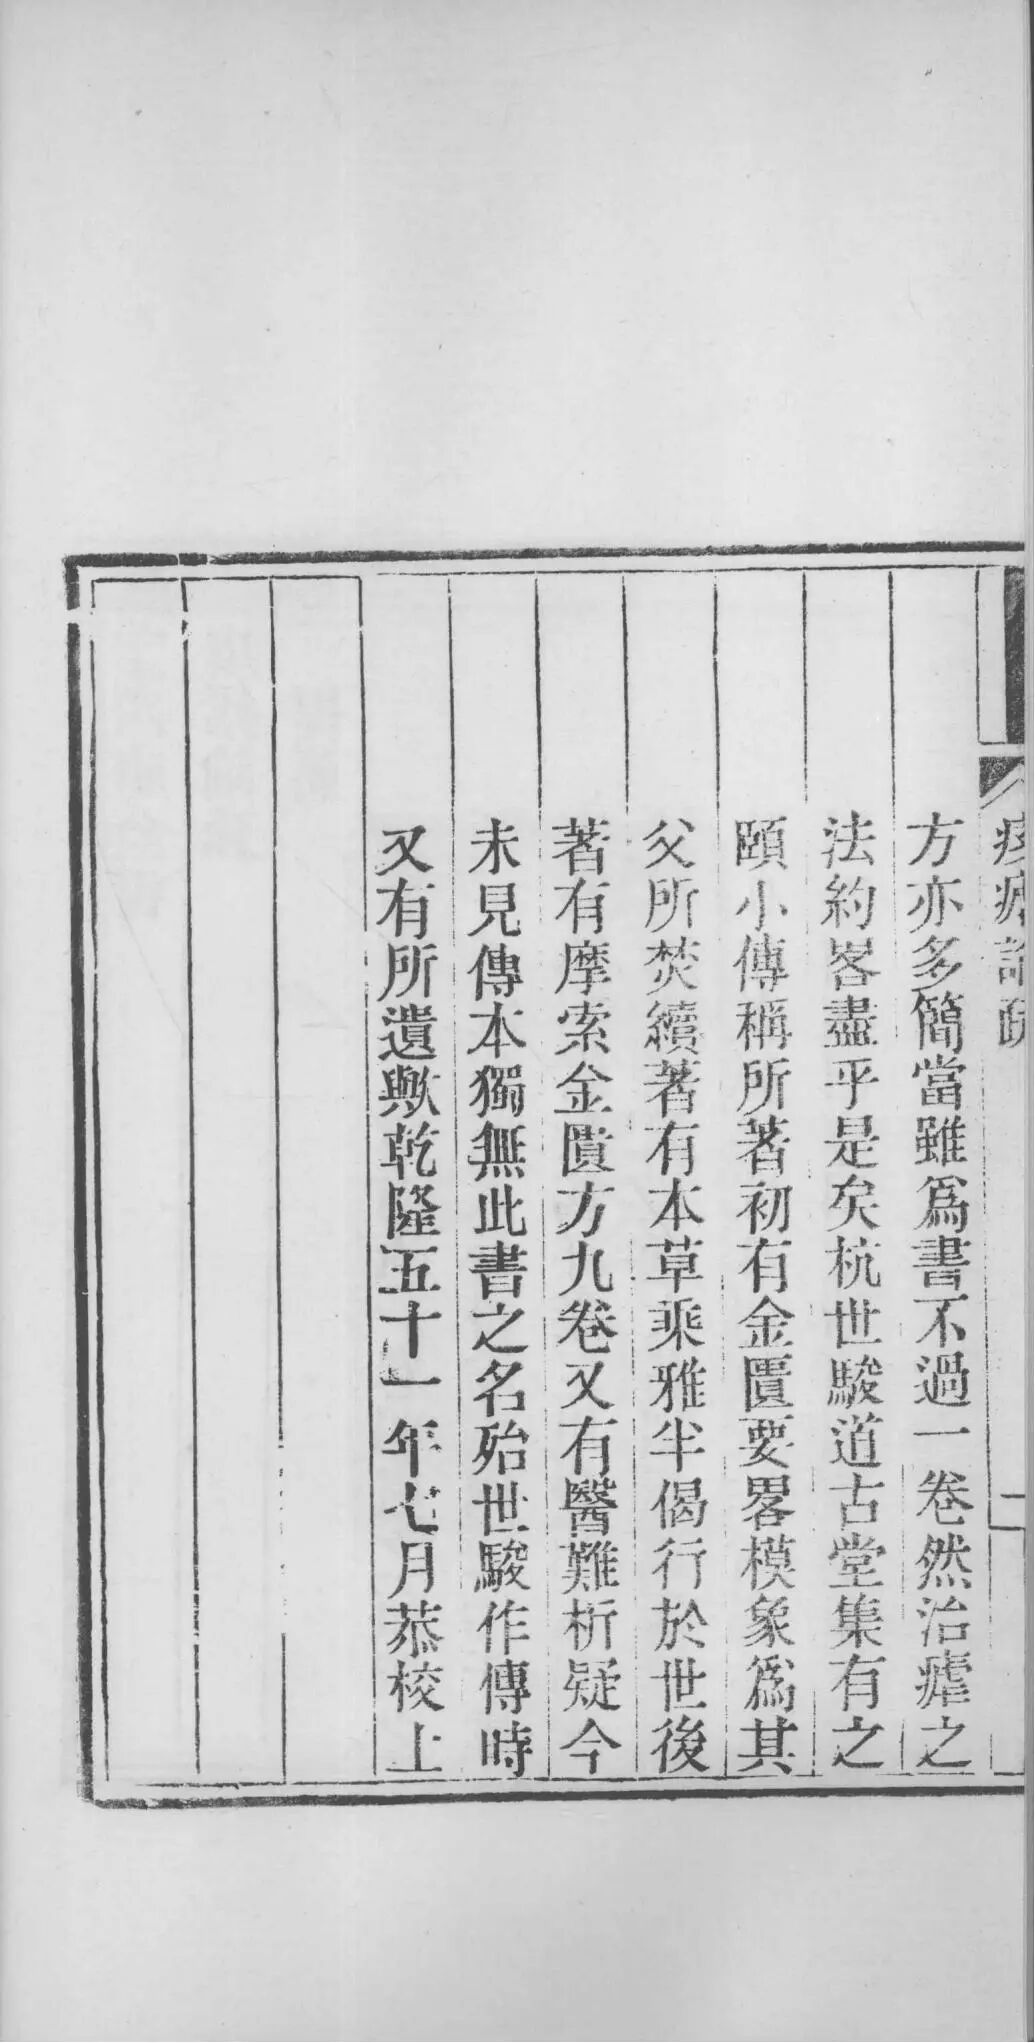 痎瘧論疏
一
方亦多簡當雖爲書不過一卷然治瘧之
法約畧盡乎是矣杭世駿道古堂集有之
頤小傳稱所著初有金匱要畧模象爲其
父所焚續著有本草乘雅半偈行於世後
著有摩索金匱方九卷又有醫難析疑今
未見傳本獨無此書之名殆世駿作傳時
又有所遺歟乾隆五十一年七月恭校上